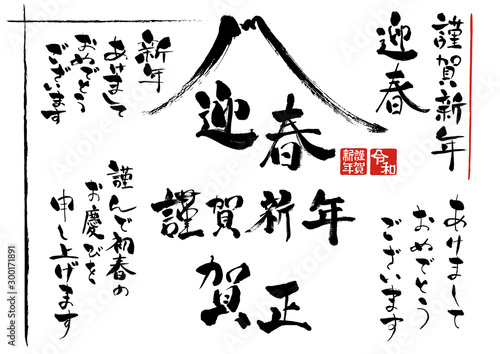 謹賀新年
迎春
迎春
謹賀新年
令和
新年
あけまして
おめでとう
ございます
謹賀新年
賀正
あけまして
おめでとう
ございます
謹んで初春の
お慶びを
申し上げます
Adobe Stock | #300171891